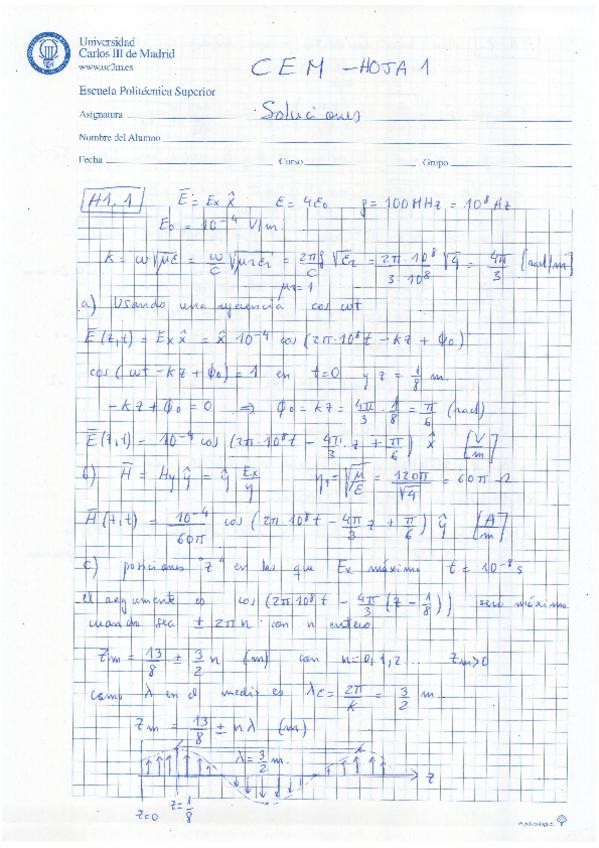 Universidad
Carlos III de Madrid
www.uc3m.es
CEM - HOJA 1
Escuela Politécnica Superior
Asignatura Soluciones
Nombre del Alumno
Fecha Curso Grupo
H1.1 E̅ = Ex x̂ ε = 4ε₀ f = 100 MHz = 10⁸ Hz
E₀ = 10⁻⁴ V/m.
k = ω√με = ω/c √μrεr = 2πf/c √εr = 2π·10⁸/3·10⁸ √4 = 4π/3 [rad/m]
μr = 1
a) Usando una referencia cos ωt
E̅(z,t) = Ex x̂ = x̂ 10⁻⁴ cos(2π·10⁸t - kz + ϕ₀)
cos(ωt - kz + ϕ₀) = 1 en t=0 y z = 1/8 m.
-kz + ϕ₀ = 0 ⇒ ϕ₀ = kz = 4π/3 · 1/8 = π/6 (rad)
E̅(z,t) = 10⁻⁴ cos(2π·10⁸t - 4π/3 z + π/6) x̂ [V/m]
b) H̅ = Hy ŷ = ŷ Ex/η η₁ = √μ/ε = 120π/√4 = 60π Ω
H̅(z,t) = 10⁻⁴/60π cos(2π10⁸t - 4π/3 z + π/6) ŷ [A/m]
c) posiciones "z" en las que Ex máximo t = 10⁻⁸ s
el argumento es cos(2π10⁸t - 4π/3 (z - 1/8)) será máximo
cuando sea ± 2πn con n entero
zm = 13/8 ± 3/2 n (m) con n=0,1,2... zm>0
como λ en el medio es λc = 2π/k = 3/2 m.
zm = 13/8 ± nλ (m)
λ = 3/2 m.
z
z=0 z=1/8